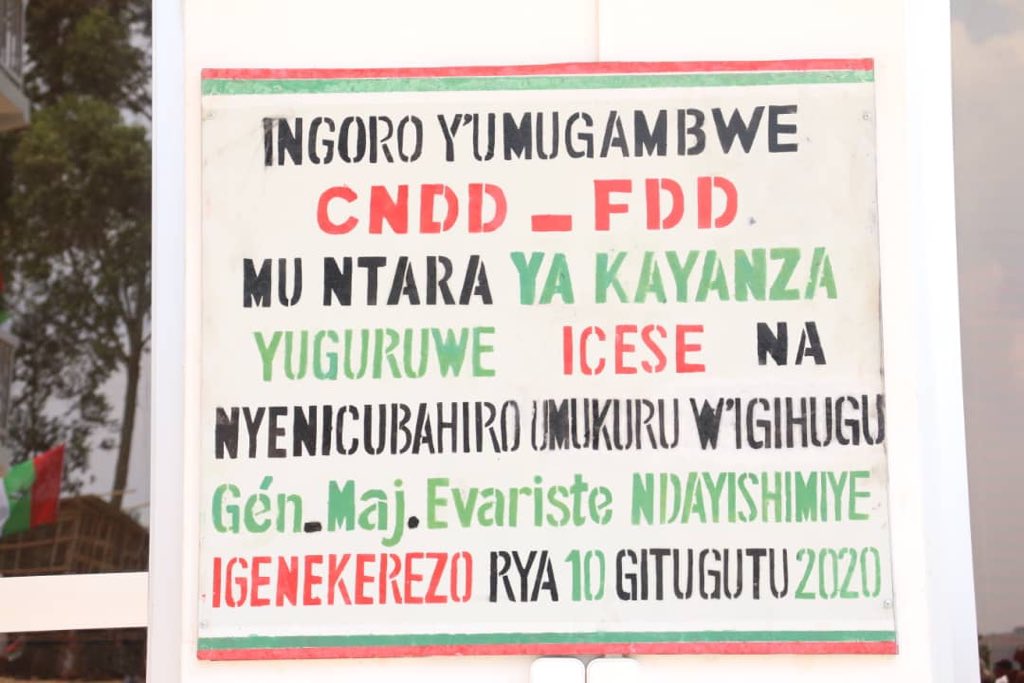 INGORO Y'UMUGAMBWE
CNDD_FDD
MU NTARA YA KAYANZA
YUGURUWE ICESE NA
NYENICUBAHIRO UMUKURU W'IGIHUGU
Gén_Maj.Evariste NDAYISHIMIYE
IGENEKEREZO RYA 10 GITUGUTU 2020